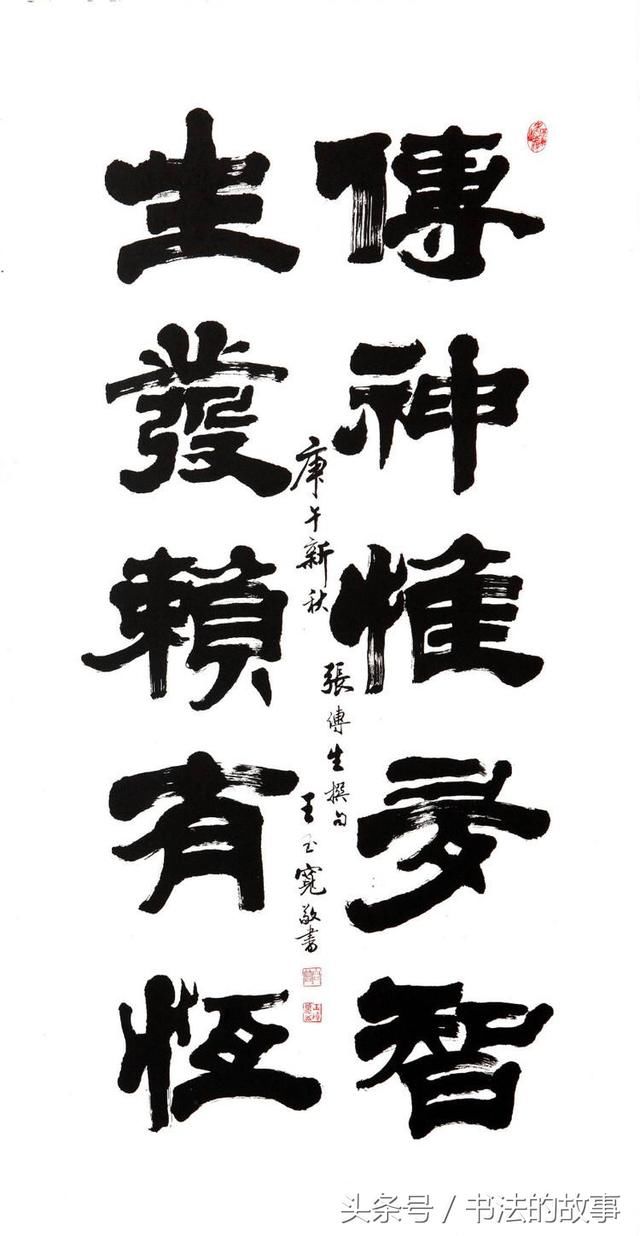 傳神惟多智
生發賴有恆
庚午新秋
張傳生撰句
王玉寬敬書
头条号 / 书法的故事